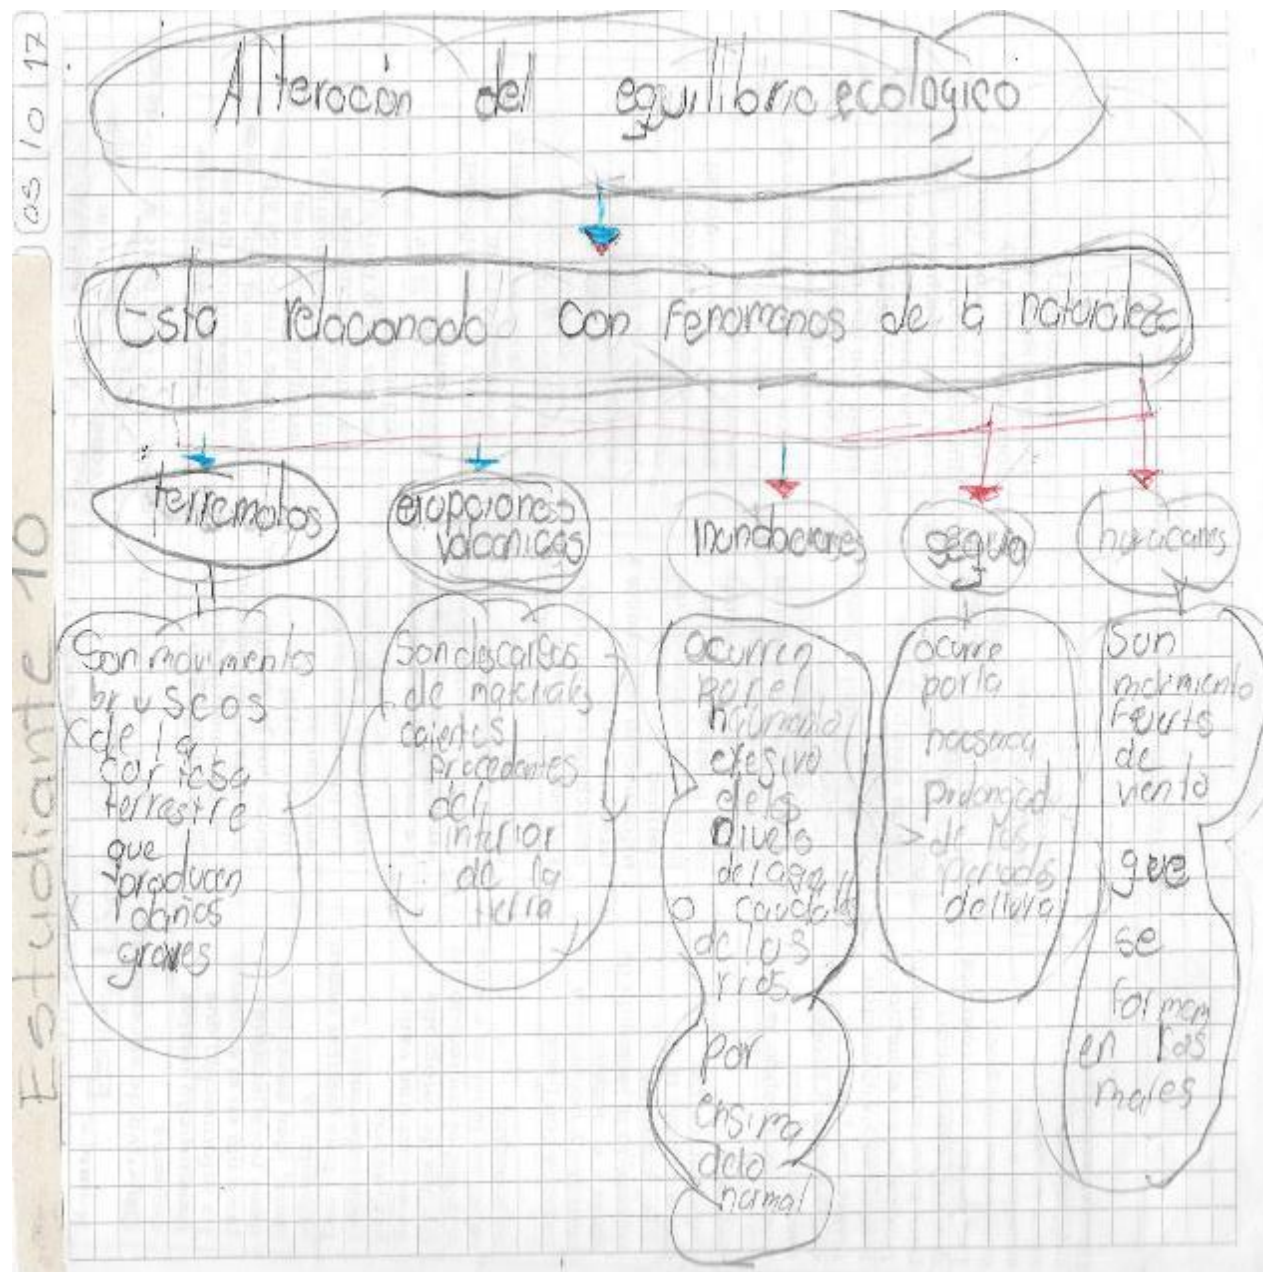 03/10/17
Estudiante 10
Alteración del equilibrio ecologico
Esta relaconado con Fenomanos de la naturaleza
terremotos
Son movimientos
bruscos
de la
cortesa
terrestre
que
producen
daños
graves
erupciones
volcanicas
Son descargas
de materiales
calentes
Procedentes
del
interior
de la
tierra
inundaciones
ocurren
por el
haumento
exesivo
de los
nivels
del agua
o caudales
de los
rios
por
ensima
delo
normal
sequia
ocurre
por la
prolongad
de los
periodos
de lluvia
huracanes
Son
movimiento
Fuerts
de
viento
que
se
forman
en las
mares